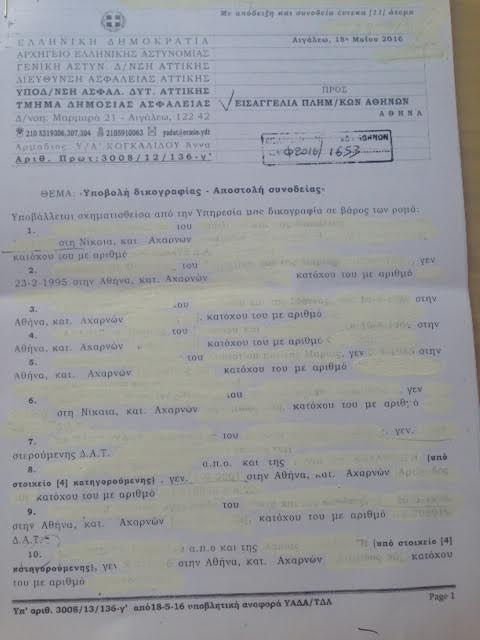 Με απόδειξη και συνοδεία έντεκα [11] άτομα
ΕΛΛΗΝΙΚΗ ΔΗΜΟΚΡΑΤΙΑ
ΑΡΧΗΓΕΙΟ ΕΛΛΗΝΙΚΗΣ ΑΣΤΥΝΟΜΙΑΣ
ΓΕΝΙΚΗ ΑΣΤΥΝ. Δ/ΝΣΗ ΑΤΤΙΚΗΣ
ΔΙΕΥΘΥΝΣΗ ΑΣΦΑΛΕΙΑΣ ΑΤΤΙΚΗΣ
ΥΠΟΔ/ΝΣΗ ΑΣΦΑΛ. ΔΥΤ. ΑΤΤΙΚΗΣ
ΤΜΗΜΑ ΔΗΜΟΣΙΑΣ ΑΣΦΑΛΕΙΑΣ
Δ/νση: Μαρμαρά 21 - Αιγάλεω, 122 42
210 5319306,307,304 2105910063
Αρμόδιος: Υ/Α΄ ΧΟΓΚΑΛΙΔΟΥ Άννα
Αριθ. Πρωτ:3008/12/136-γ'
Αιγάλεω, 18η Μαΐου 2016
ΠΡΟΣ
ΕΙΣΑΓΓΕΛΙΑ ΠΛΗΜ/ΚΩΝ ΑΘΗΝΩΝ
ΑΘΗΝΑ
Φ2016/ 1653
ΘΕΜΑ: «Υποβολή δικογραφίας - Αποστολή συνοδείας»
Υποβάλλεται σχηματισθείσα από την Υπηρεσία μας δικογραφία σε βάρος των ρομά:
1. του
στη Νίκαια, κατ. Αχαρνών
κατόχου του με αριθμό
2. του , γεν
23-2-1995 στην Αθήνα, κατ. Αχαρνών κατόχου του με αριθμό
3. του στην
Αθήνα, κατ. Αχαρνών , κατόχου του με αριθμό
4. του στην
Αθήνα, κατ. Αχαρνών κατόχου του με αριθμό
5. του , γεν στην
Αθήνα, κατ. Αχαρνών κατόχου του με αριθμό
6. του , γεν
στη Νίκαια, κατ. Αχαρνών κατόχου του με αριθμό
7. του , γεν.
στερούμενης Δ.Α.Τ.
8. α.π.ο. και της (υπό
στοιχείο [4] κατηγορούμενης) , γεν. στην Αθήνα, κατ. Αχαρνών
κατόχου του με αριθμό
9. του
στην Αθήνα, κατ. Αχαρνών κατόχου του με αριθμό
Δ.Α.Τ.
10. α.π.ο και της (υπό στοιχείο [4]
κατηγορούμενης), γεν στην Αθήνα, κατ. Αχαρνών κατόχου
του με αριθμό
Υπ' αριθ. 3008/13/136-γ' από18-5-16 υποβλητική αναφορά ΥΑΔΑ/ΤΔΑ
Page 1